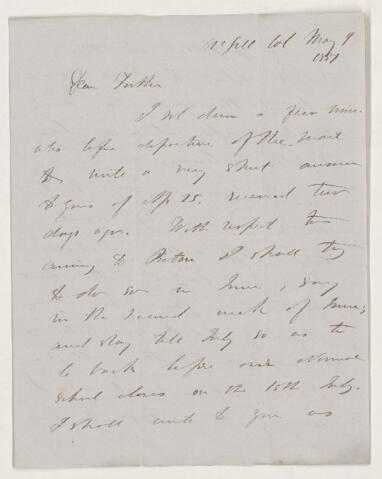 McGill Col May 9
1857
Dear Father
I sit down a few min-
utes before departure of the mail
to write a very short answer
to yours of Ap 25. received two
days ago. With respect to
coming to Pictou I shall try
to do so in June, say
in the second week of June,
and stay till July so as to
be back before our Normal
school closes on the 15th July.
I shall write to you as